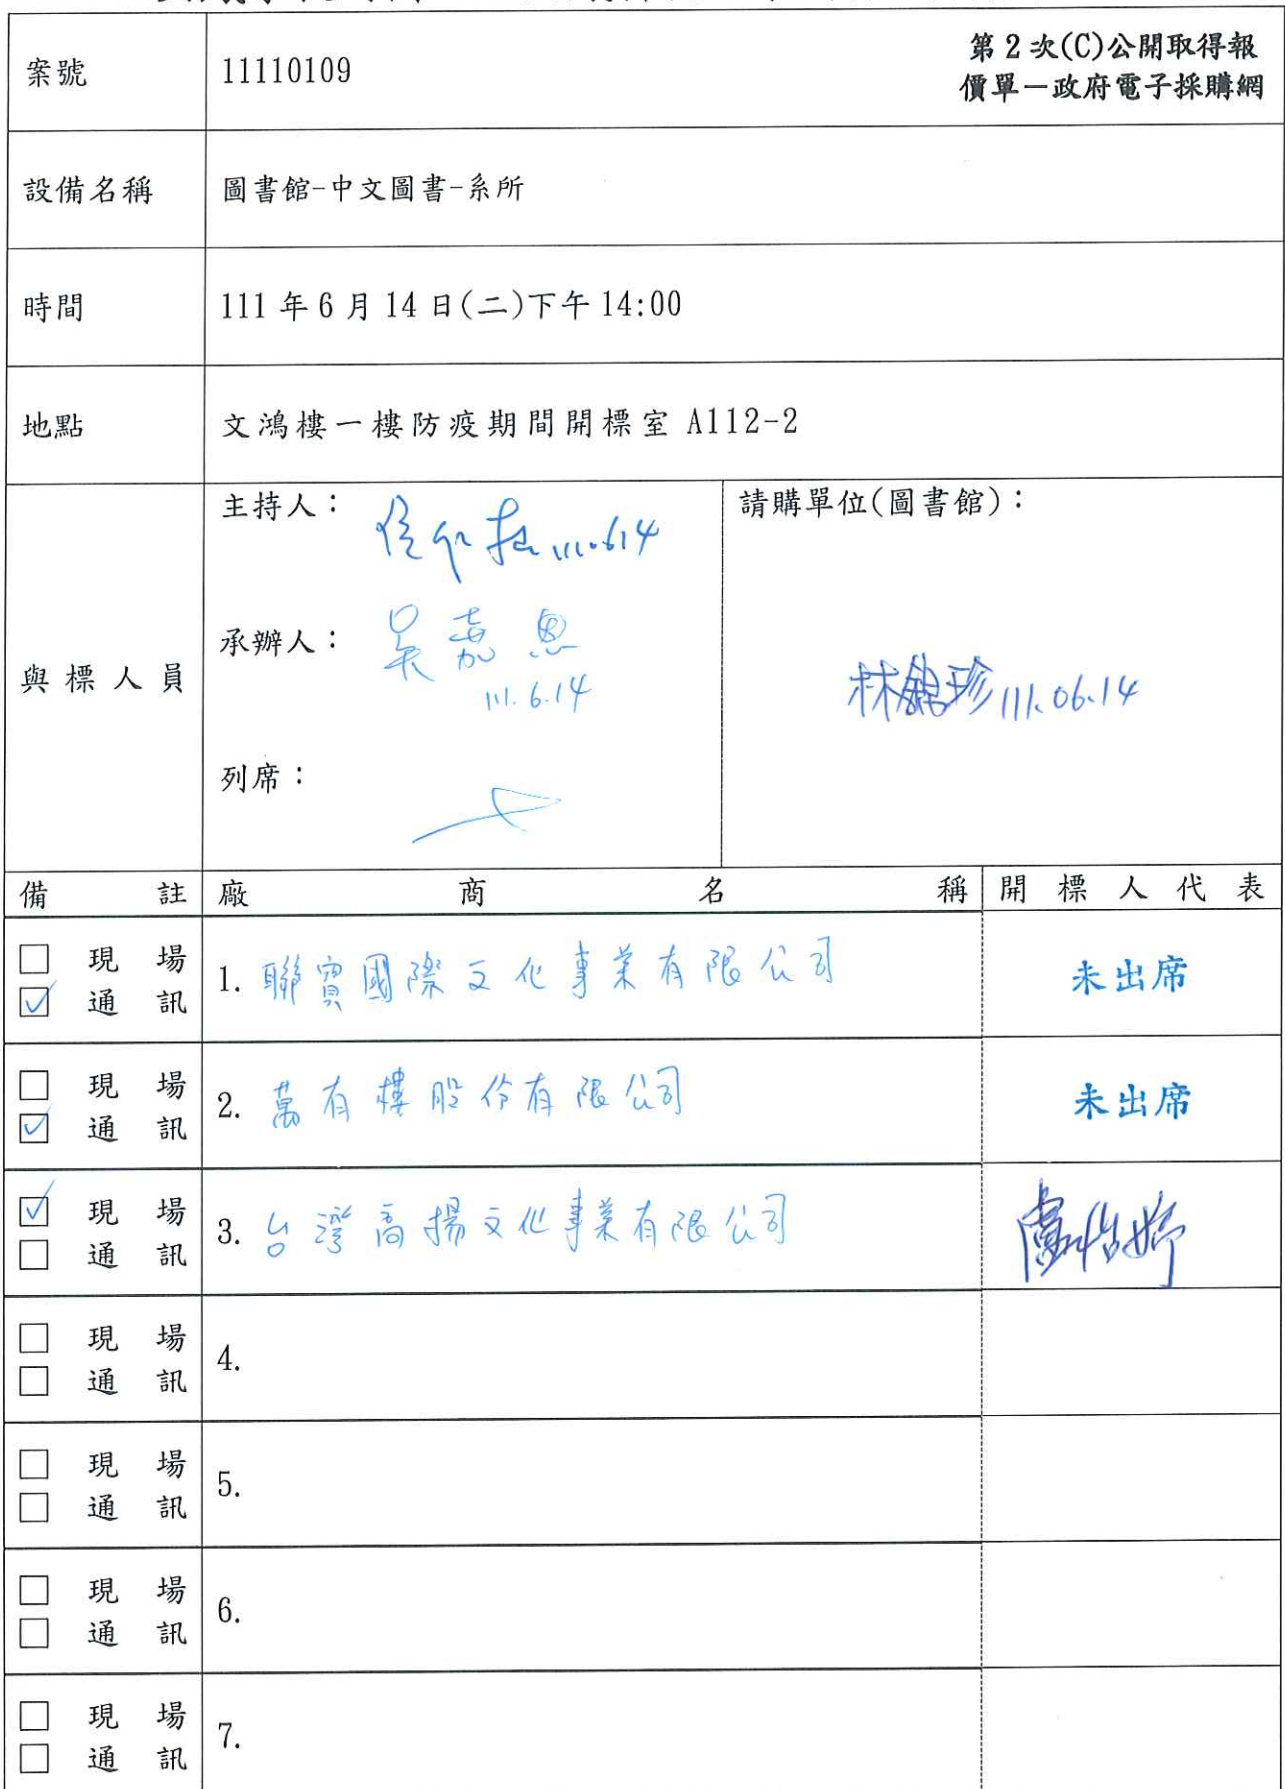 案號 11110109 第2次(C)公開取得報
價單－政府電子採購網
設備名稱 圖書館-中文圖書-系所
時間 111年6月14日(二)下午14:00
地點 文鴻樓一樓防疫期間開標室 A112-2
與標人員
主持人： 111.6.14
承辦人： 吳嘉恩
111.6.14
列席：
請購單位(圖書館)：
林錦珍 111.06.14
備註 廠商名稱 開標人代表
□ 現場
☑ 通訊
1. 聯寶國際文化事業有限公司 未出席
□ 現場
☑ 通訊
2. 萬有樓股份有限公司 未出席
☑ 現場
□ 通訊
3. 台灣高揚文化事業有限公司
□ 現場
□ 通訊
4.
□ 現場
□ 通訊
5.
□ 現場
□ 通訊
6.
□ 現場
□ 通訊
7.